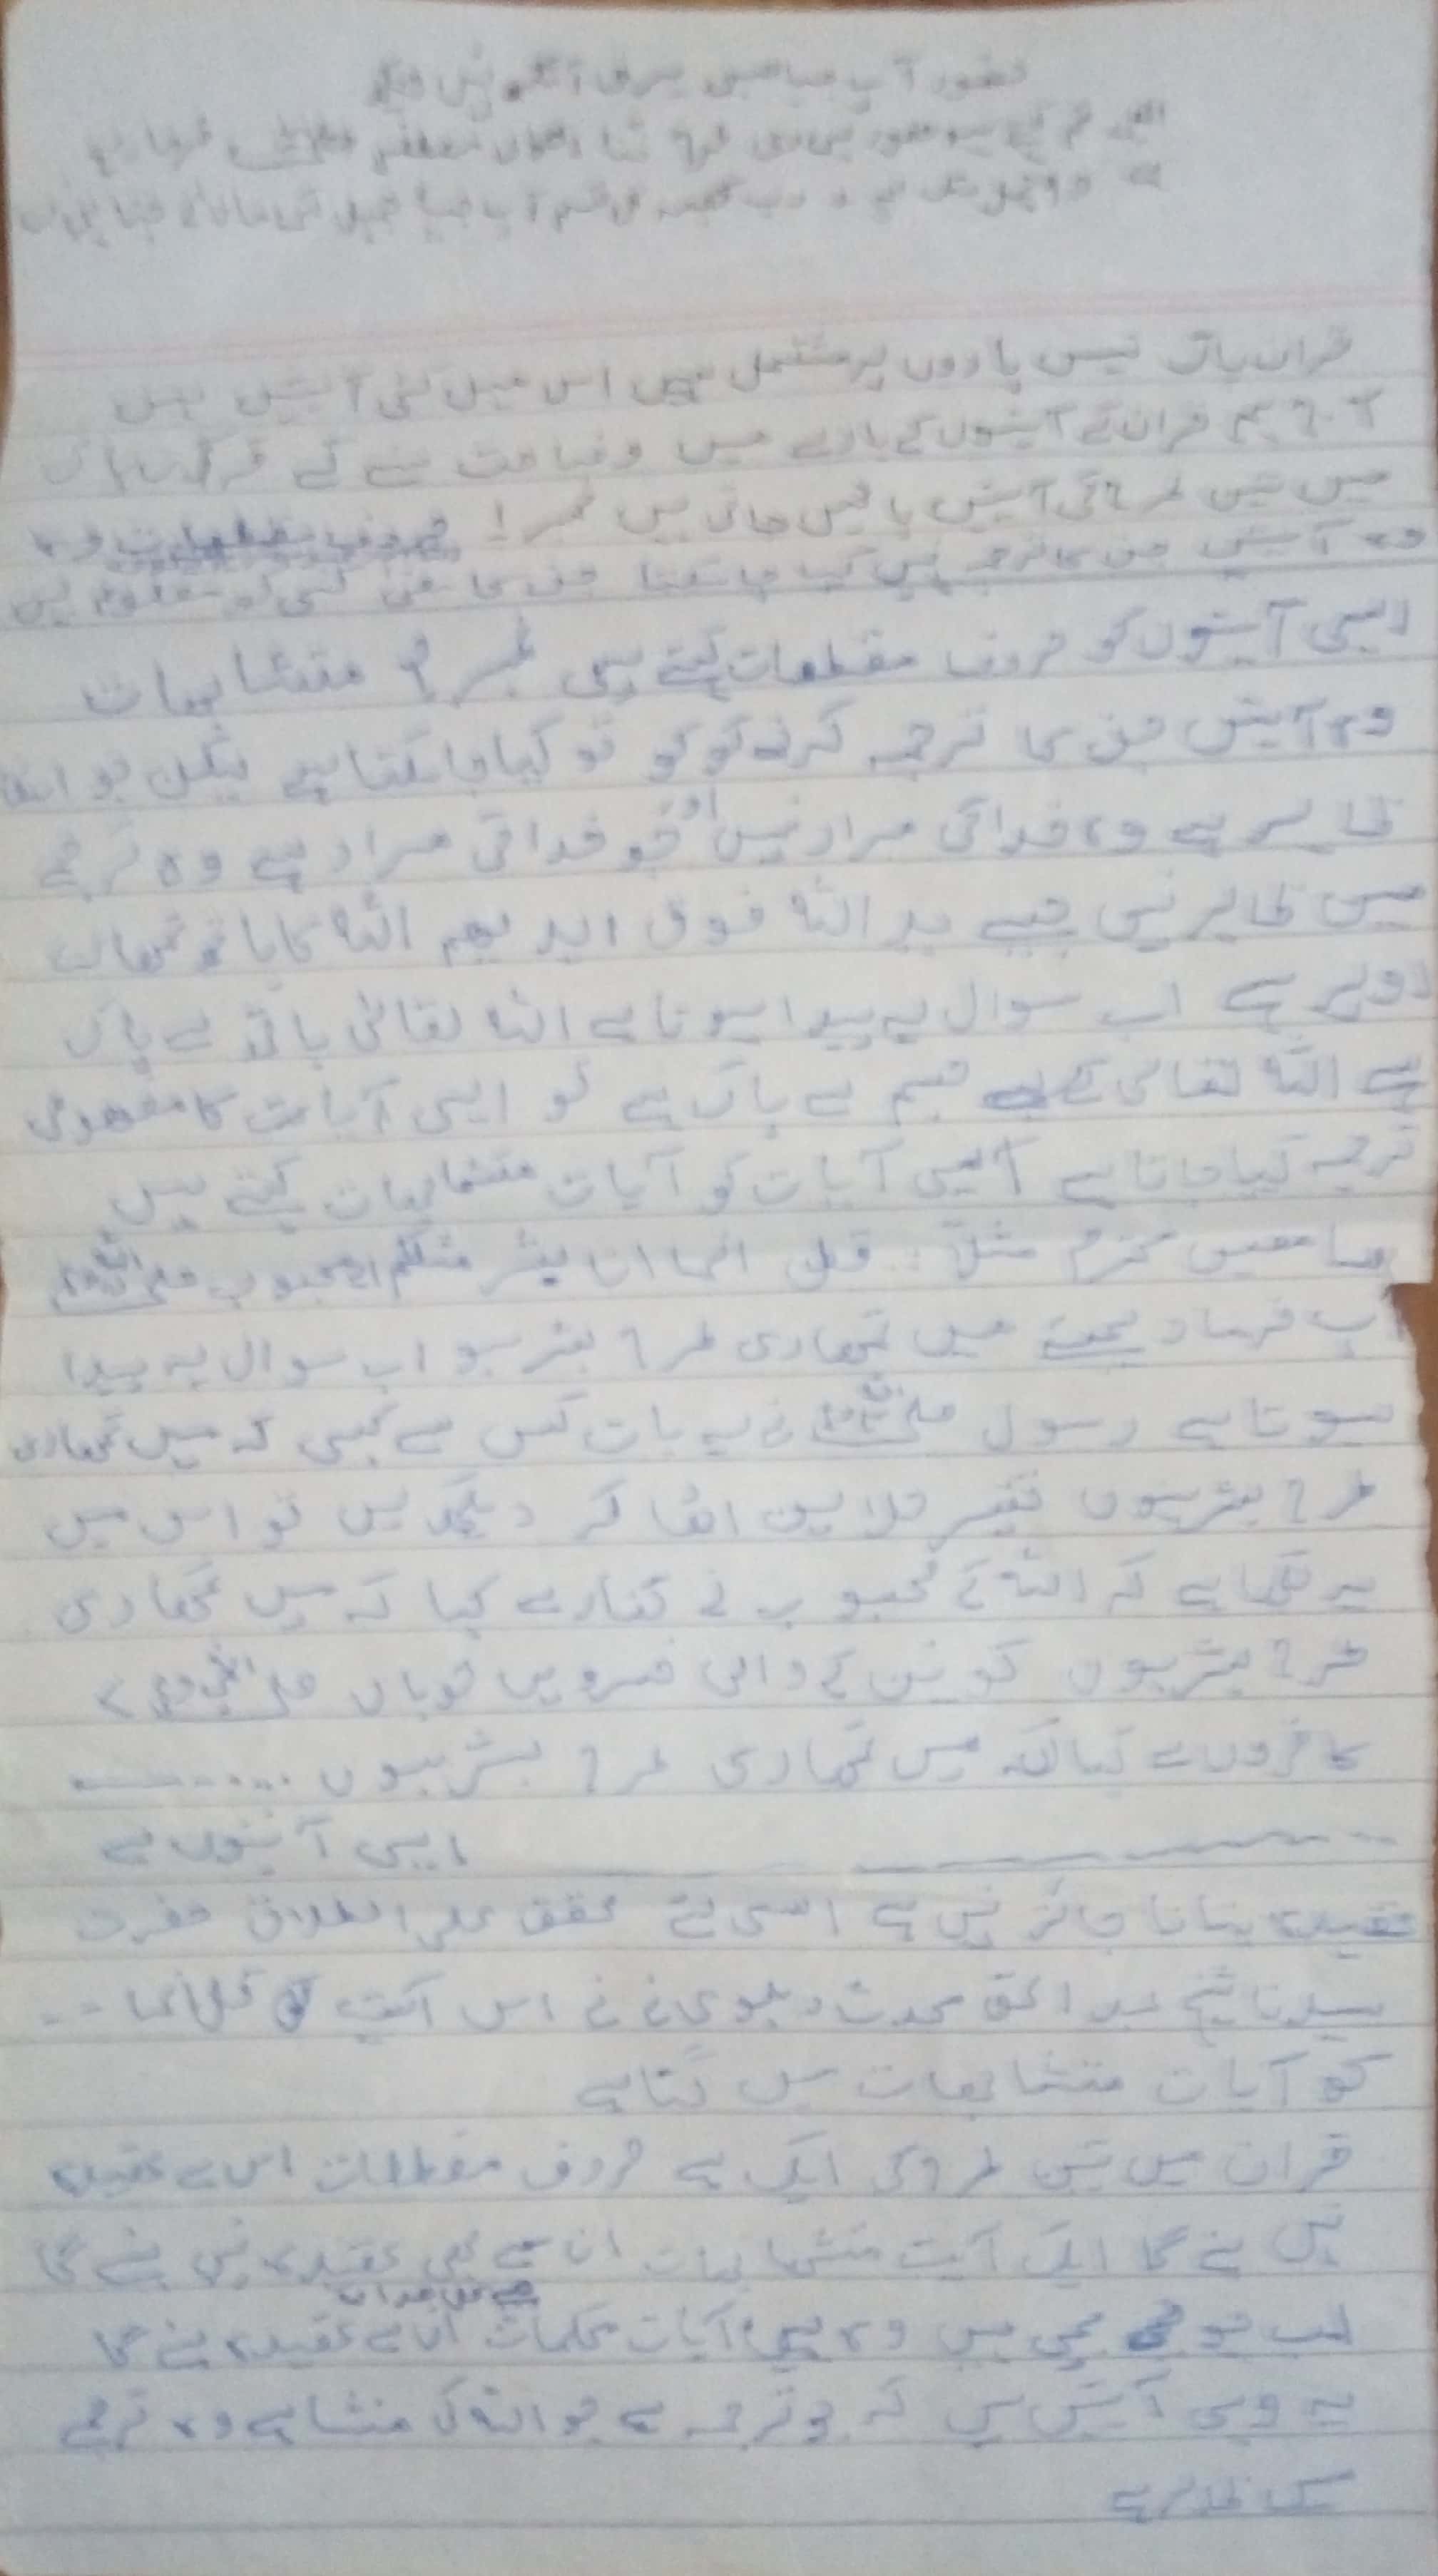 حضور آپ جیسا حسیں میری آنکھ نے نہیں دیکھا
قران پاک تیس پاروں پر مشتمل ہیں اس میں کئی آیتیں ہیں
ہم قران کے آیتوں کے بارے میں وضاحت سنے گے قران پاک
میں تین طرح کی آیتیں پائیں جاتی ہیں نمبر ۱ حروف مقطعات وہ
وہ آیتیں جن کا ترجمہ نہیں کیا جا سکتا جن کا معنی کسی کو معلوم نہیں
ایسی آیتوں کو حروف مقطعات کہتے ہیں نمبر ۲ متشابہات
وہ آیتیں جن کا ترجمہ کرنے کو کو تو کیا جا سکتا ہے لیکن جو
ظاہر ہے وہ خدا کی مراد نہیں اور جو خدا کی مراد ہے وہ ترجمے
میں ظاہر نہیں جیسے ید اللہ فوق ایدیھم اللہ کا ہاتھ تمھارے
اوپر ہے اب سوال یہ پیدا ہوتا ہے اللہ تعالٰی ہاتھ سے پاک
ہے اللہ تعالٰی جسم سے پاک ہے تو ایسی آیات کا مفہومی
ترجمہ کیا جاتا ہے ایسی آیات کو آیات متشابہات کہتے ہیں
سامعین محترم مثلاً : قل انما ان بشر مثلکم اے محبوب صلی اللہ
آپ فرما دیجئے میں تمھاری طرح بشر ہو اب سوال یہ پیدا
ہوتا ہے رسول صلی اللہ نے یہ بات کس سے کہی کہ میں تمھاری
طرح بشر ہوں تفسیر جلالین اٹھا کر دیکھ لیں تو اس میں
یہ لکھا ہے کہ اللہ کے محبوب نے کفار سے کہا کہ میں تمھاری
طرح بشر ہوں کونین کے والی سرور خوباں صلی اللہ نے
کافروں سے کہا کہ میں تمھاری طرح بشر ہوں ....
ایسی آیتوں سے
عقیدہ بنانا جائز نہیں ہے اسی لئے محقق علی اطلاق حضرت
سیدنا شیخ عبد الحق محدث دہلوی نے اس آیت کو قل انما ..
کو آیات متشابہات میں گنا ہے
قران میں تین طرح کی ایک ہے حروف مقطعات اس سے عقیدہ
نہیں بنے گا ایک آیت متشابہات ان سے بھی عقیدہ نہیں بنے گا
اب جو بچی ہیں وہ ہیں آیات محکمات ان سے عقیدہ بنے گا
یہ وہی آیتیں ہیں کہ جو ترجمہ ہے جو اللہ کی منشا ہے وہ ترجمے
میں ظاہر ہے